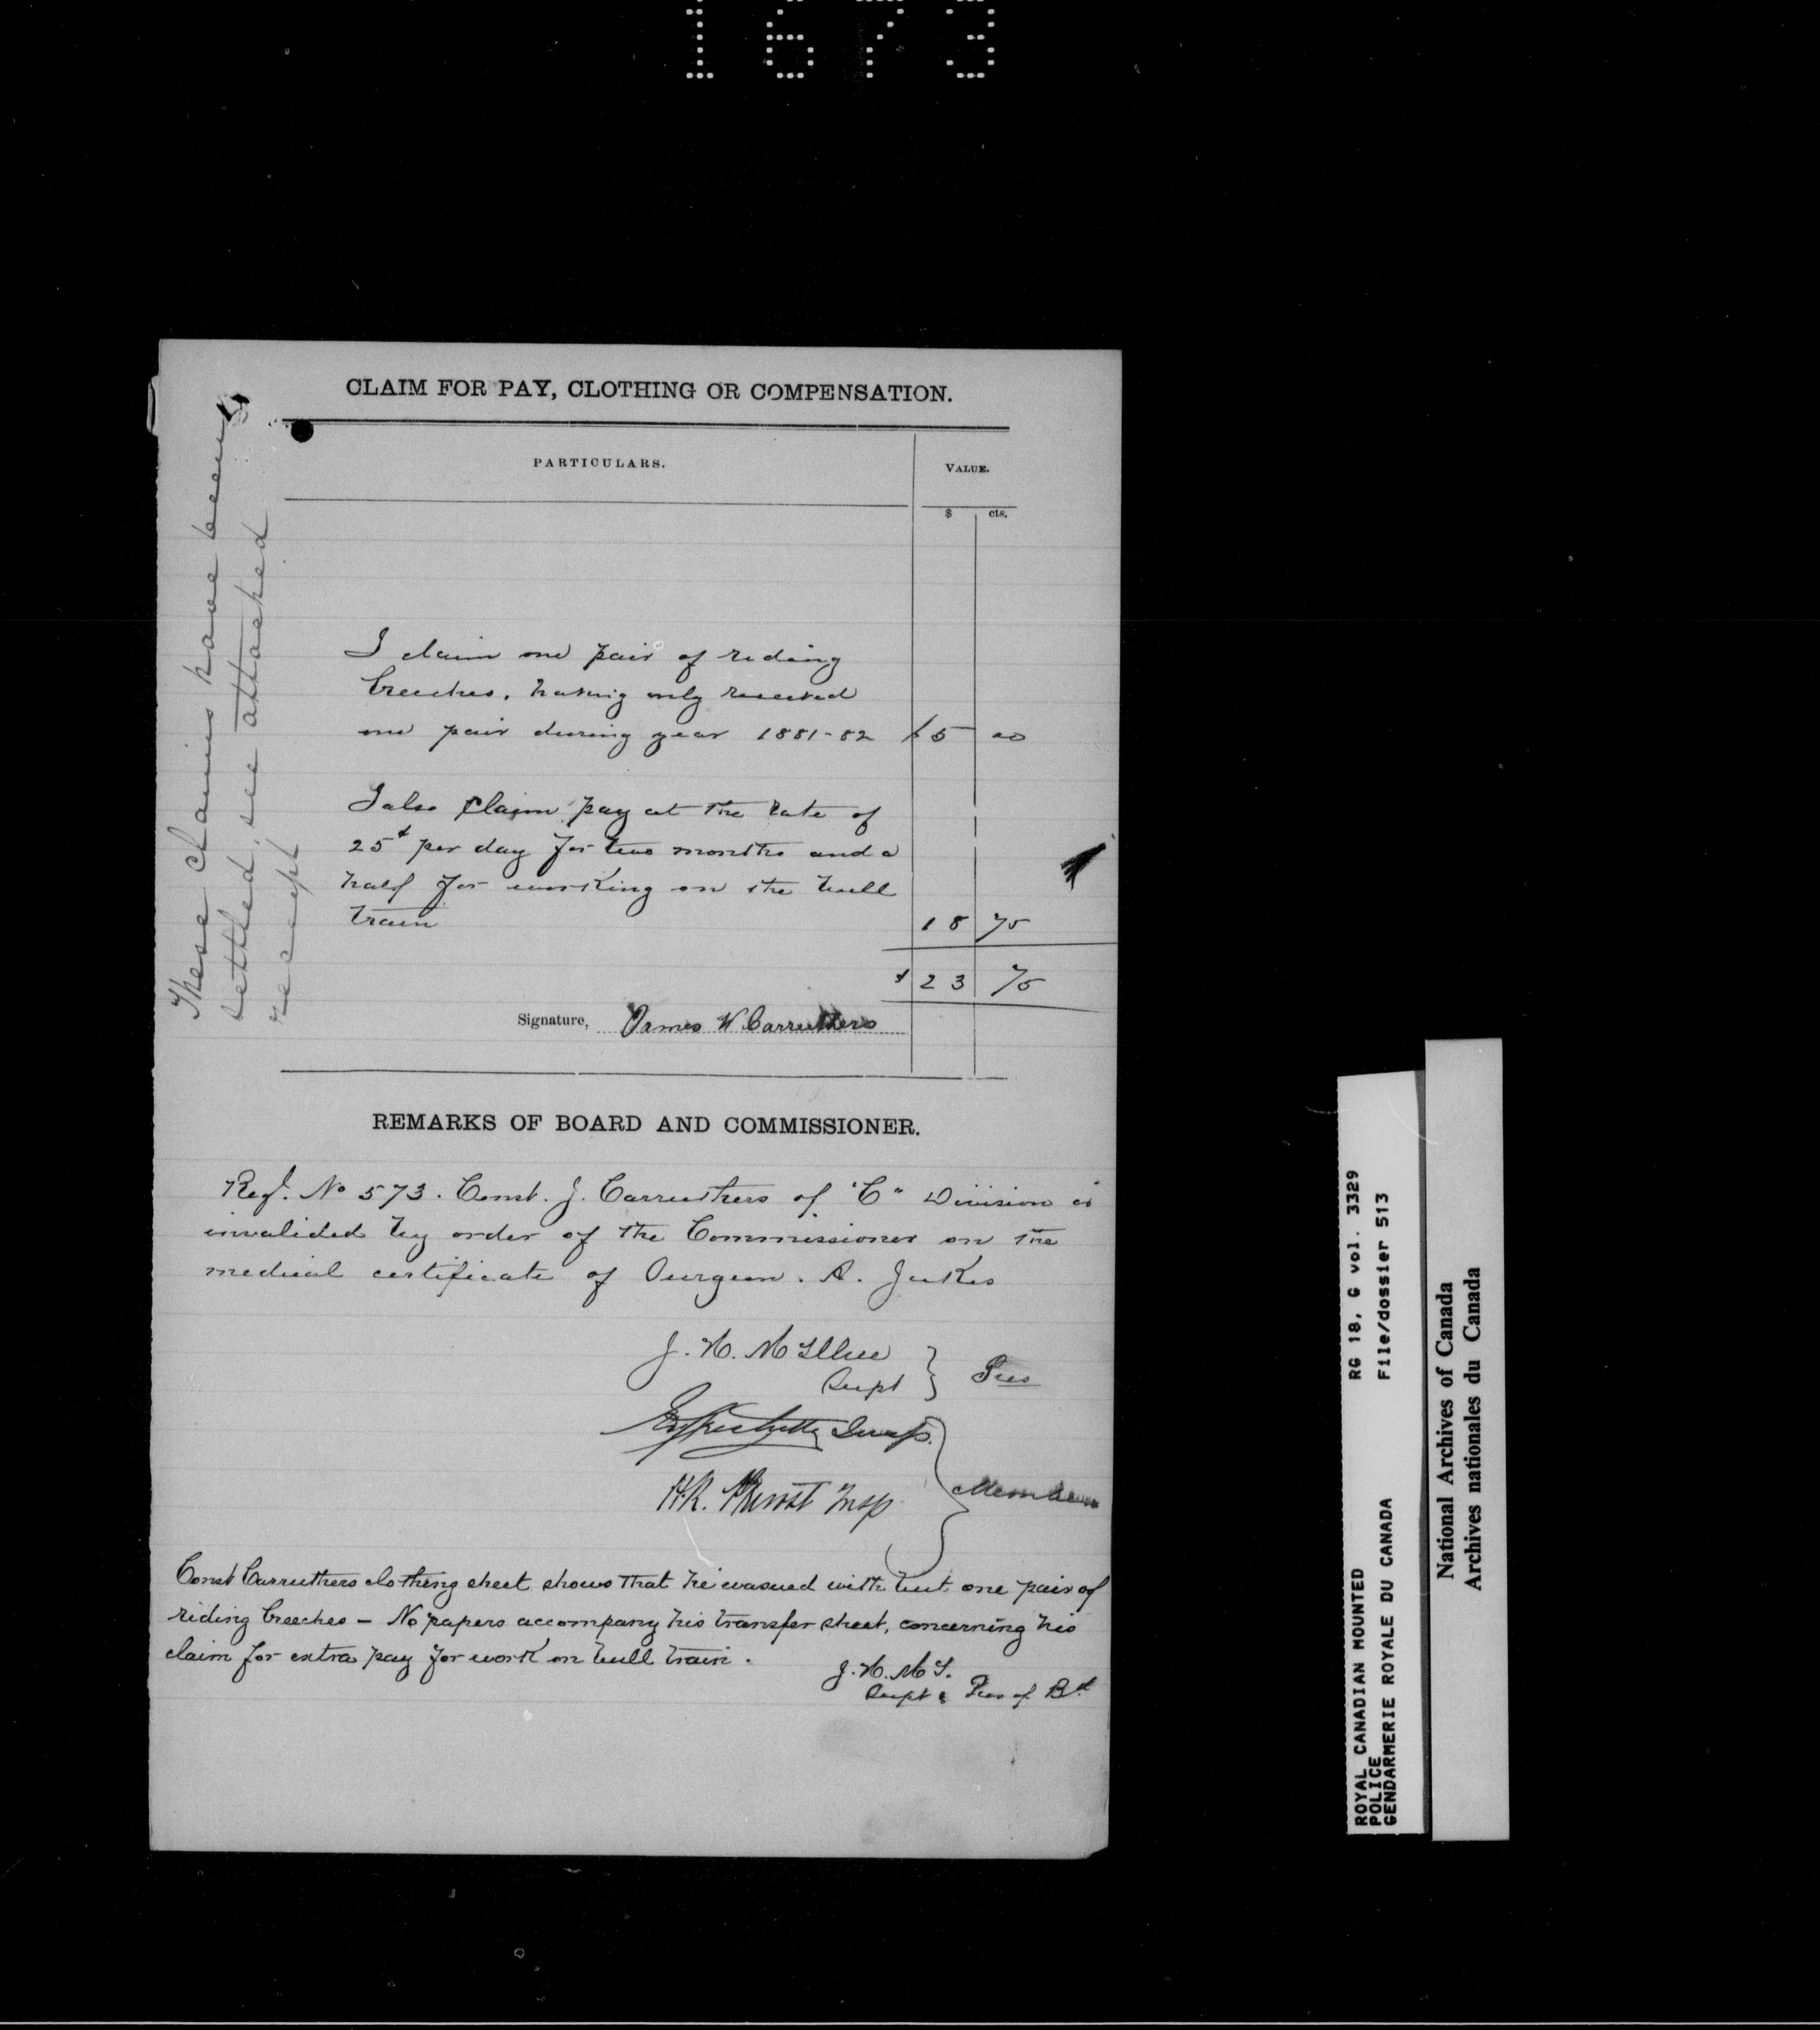 1673
CLAIM FOR PAY, CLOTHING OR COMPENSATION.
PARTICULARS.
VALUE.
$ cts.
I claim one pair of riding
breeches, having only received
one pair during year 1881-82 $5 00
I also claim pay at the rate of
25¢ per day for two months and a
half for working on the bull
train 18 75
$ 23 75
Signature, James W Carruthers
These claims have been
settled, see attached
receipt
REMARKS OF BOARD AND COMMISSIONER.
Regl. No 573. Const. J. Carruthers of "C" Division is
invalided by order of the Commissioner on the
medical certificate of Surgeon. A. Jukes
J. H. McIllree
Supt } Pres
Insp.
Insp
Members
Const Carruthers clothing sheet shows that he was issued with but one pair of
riding breeches — No papers accompany his transfer sheet, concerning his
claim for extra pay for work on bull train.
J. H. McI.
Supt & Pres of Bd
ROYAL CANADIAN MOUNTED RG 18, G vol. 3329
POLICE File/dossier 513
GENDARMERIE ROYALE DU CANADA
National Archives of Canada
Archives nationales du Canada